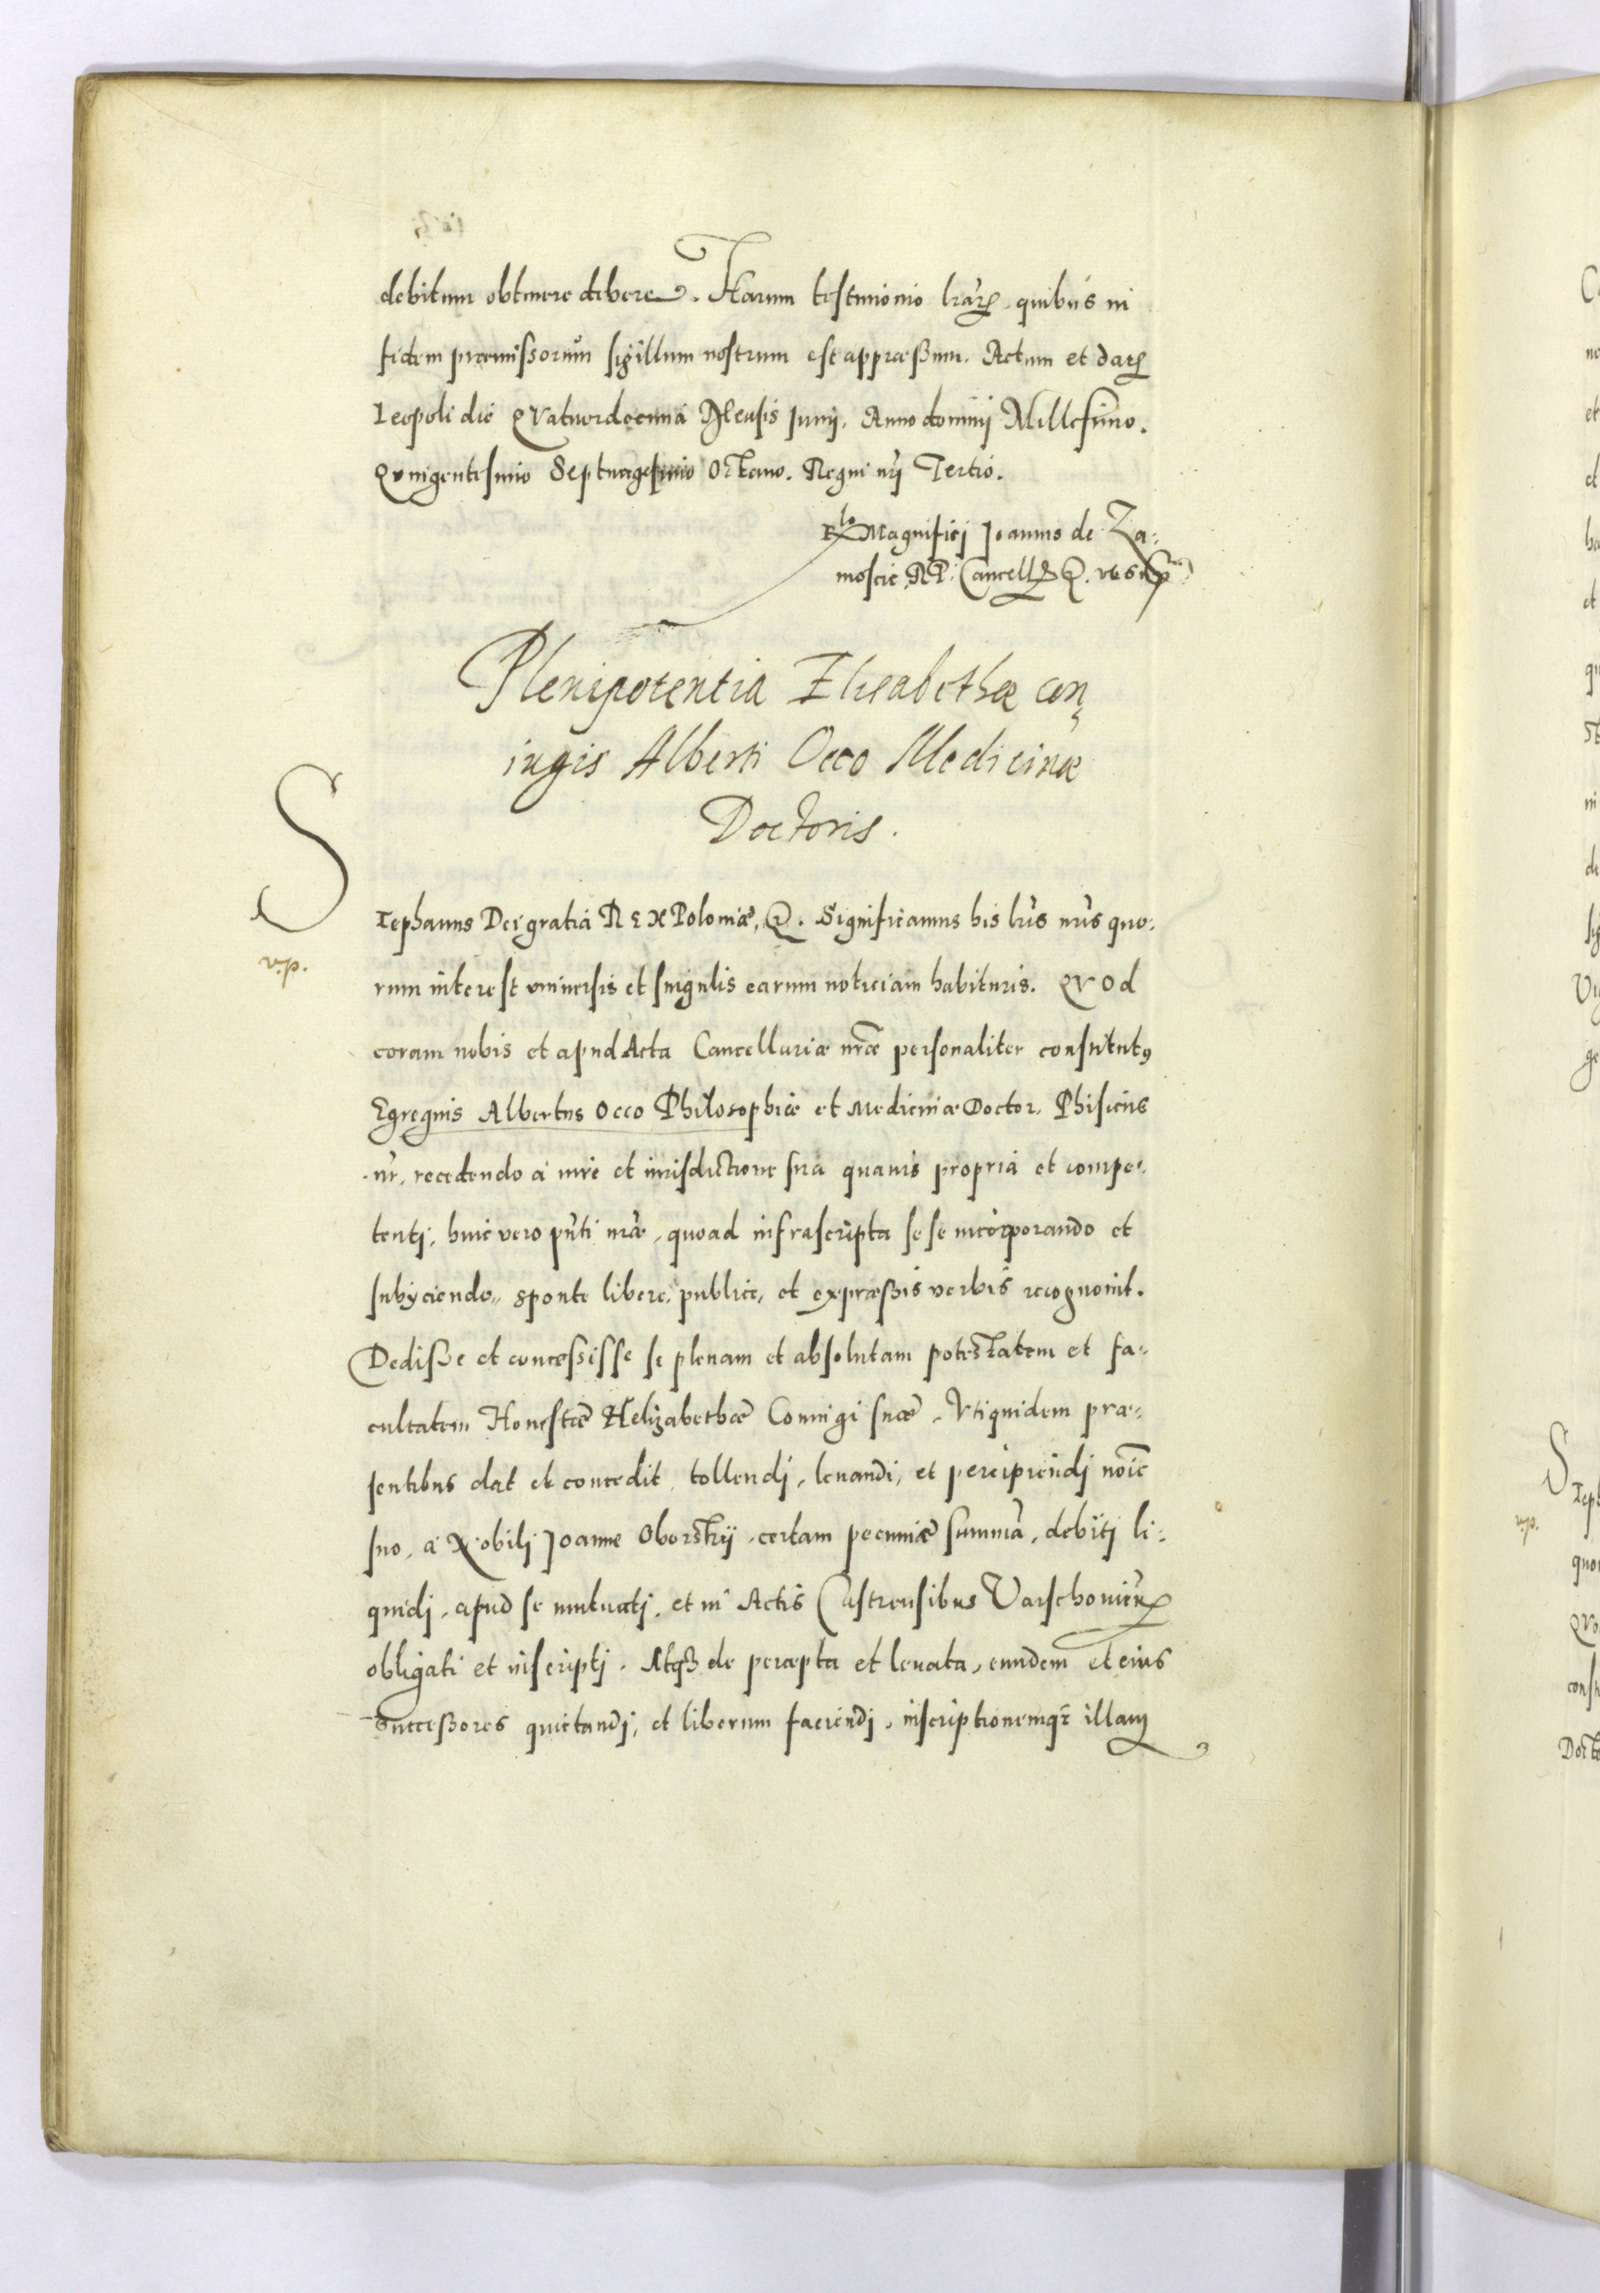 debitum obtinere debere. Harum testimonio lrarz. quibus in
fidem præmissorum sigillum nostrum est appræßum. Actum et datz
Leopoli die QVatuordecima Mensis Junij. Anno dominij Millesimo.
QVingentesimo Septuagesimo Octauo. Regni nrj Tertio.
Rlo Magnificj Joannis de Za:
moscie RP. Cancell
Plenipotentia Elisabethæ con
iugis Alberti Occo Medicinæ
Doctoris.
Stephanus Dei gratia REX Poloniæ, &. Significamus his lris nris quo:
v.p.
rum interest vniuersis et singulis earum noticiam habituris. QVod
coram nobis et apud Acta Cancellariæ nræ personaliter constitutq
Egregius Albertus Occo Philosophiæ et Medicinæ Doctor. Phisicus
nr. recedendo a iure et iurisdictione sua quauis propria et compe:
tentj, huic vero pnti nræ, quoad infrascripta se se incorporando et
subijciendo, sponte libere, publice, et expræßis verbis recognouit.
Dedisse et concessisse se plenam et absolutam potestatem et fa:
cultatem Honestæ Helizabethæ Coniugi suæ, Vtiquidem præ:
sentibus dat et concedit, tollendj, leuandi, et percipiendj noie
suo, a Nobilj Joanne Oborskij, certam pecuniæ summa, debitj li:
quidj, apud se mutuatj, et in Actis Castrensibus Varschouienz
obligati et inscriptj. Atqz de percepta et leuata, eundem et eius
Succeßores quietandj, et liberum faciendj, inscriptionemqz illam